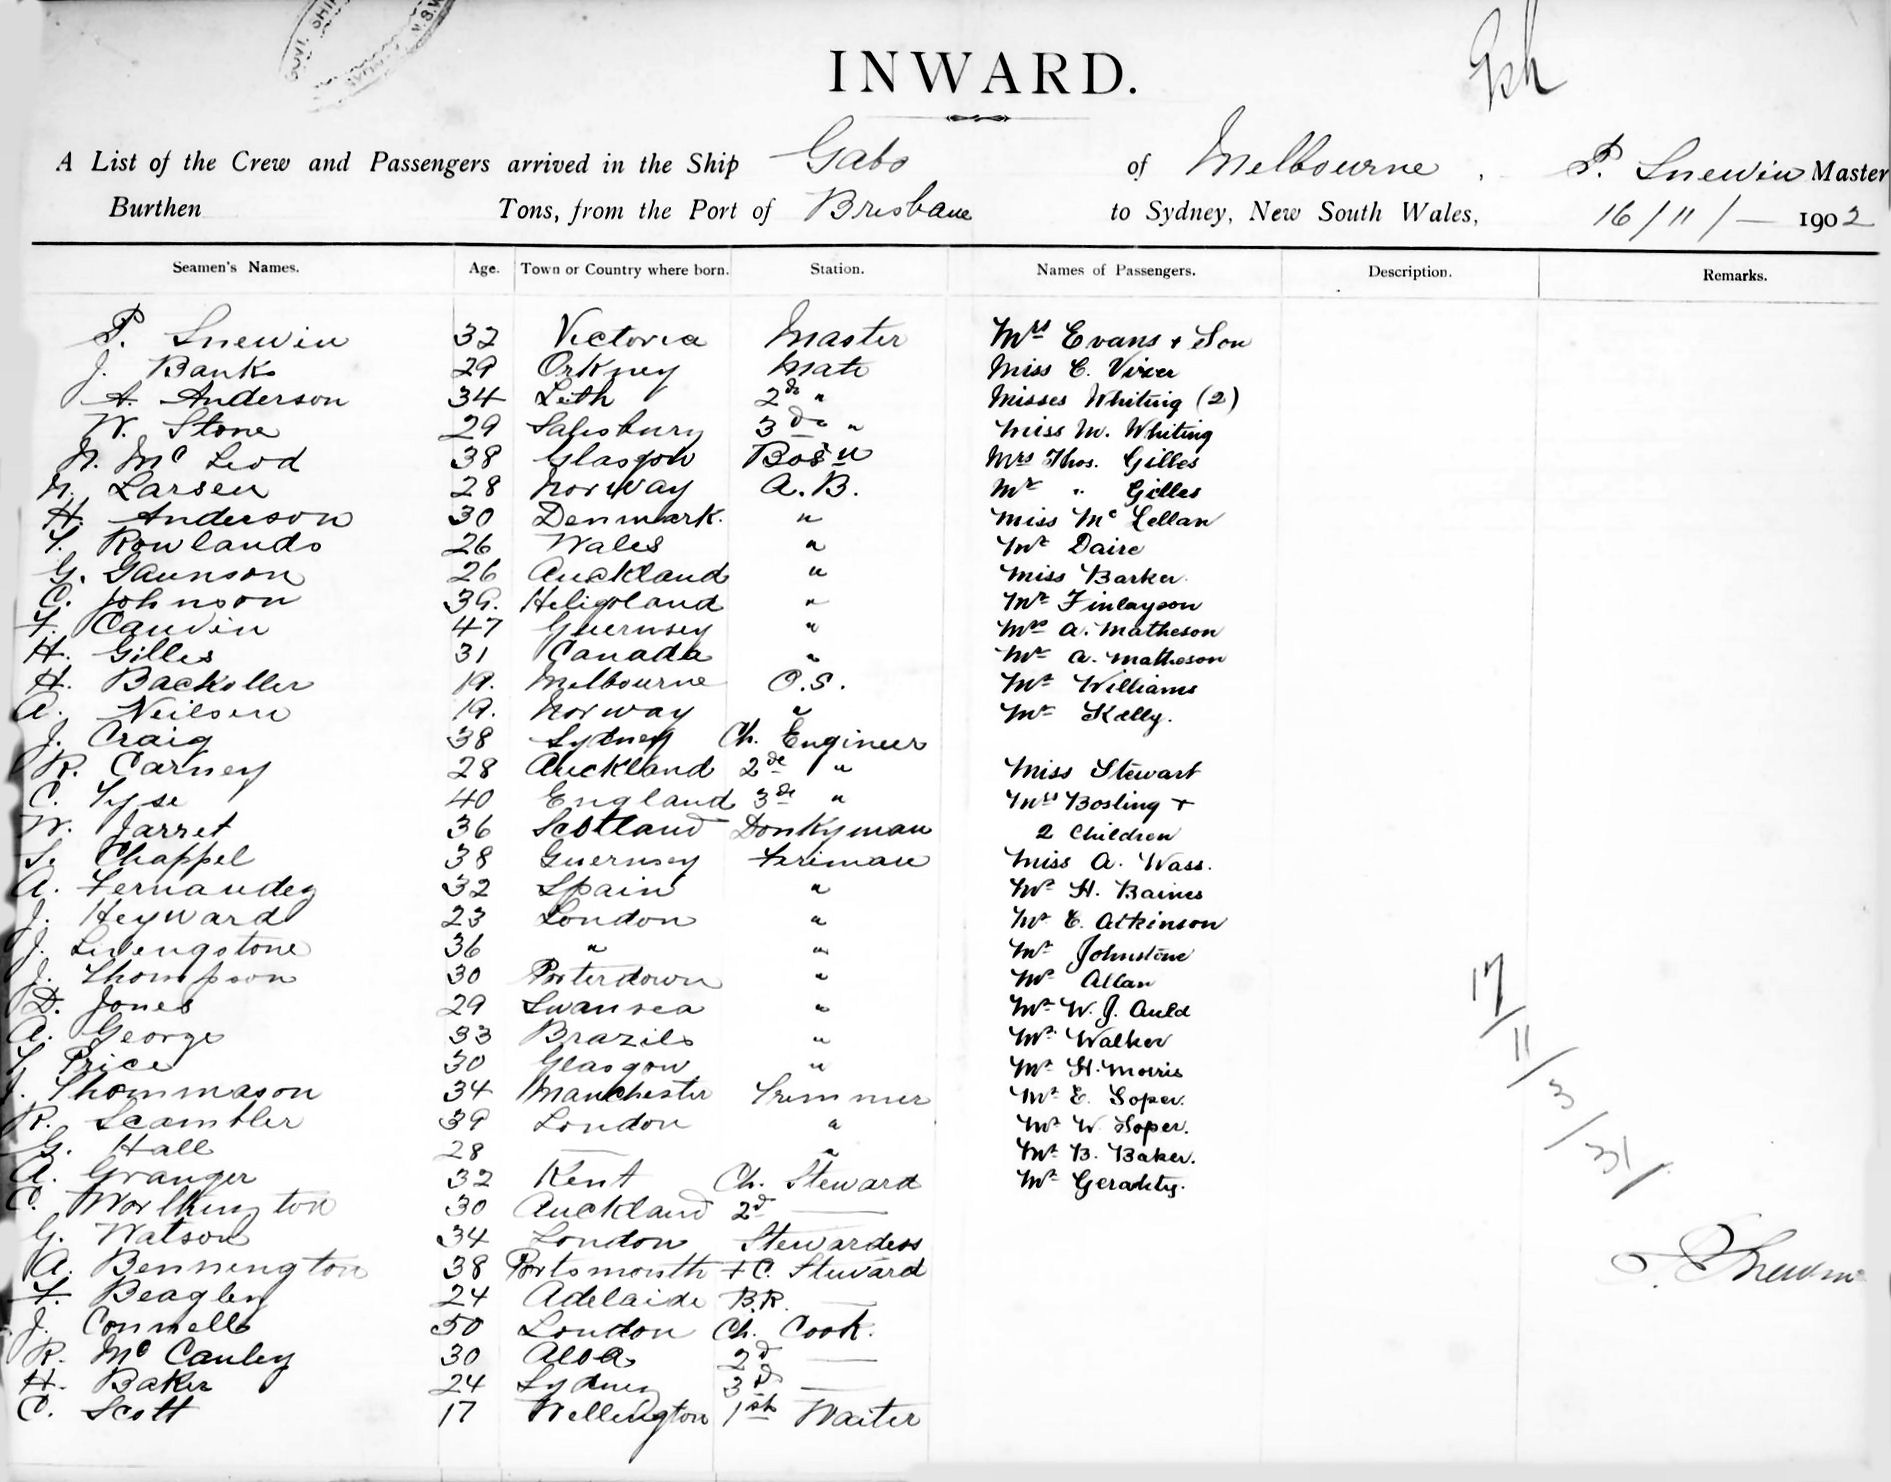 INWARD.
A List of the Crew and Passengers arrived in the Ship Gabo of Melbourne, P. Snewin Master
Burthen Tons, from the Port of Brisbane to Sydney, New South Wales, 16/11/— 1902
Seamen's Names. Age. Town or Country where born. Station. Names of Passengers. Description. Remarks.
P. Snewin 32 Victoria Master Mrs Evans + Son
J. Banks 29 Orkney Mate Miss C. Vixer
A. Anderson 34 Leith 2de " Misses Whiting (2)
W. Stone 29 Salisbury 3de " Miss M. Whiting
N. Mc Leod 38 Glasgow Bos'n Mrs Thos. Gilles
N. Larsen 28 Norway A.B. Mr " Gilles
H. Anderson 30 Denmark. " Miss Mc Lellan
T. Rowlands 26 Wales " Mr Daire
G. Gaunson 26 Auckland " Miss Barker.
C. Johnson 39. Heligoland " Mr Finlayson
F. Caudin 47 Guernsey " Mrs A. Matheson
H. Gilles 31 Canada " Mr A. Matheson
H. Backoller 19. Melbourne O.S. Mr Williams
A. Neilsen 19. Norway " Mr Kelly.
J. Craig 38 Sydney Ch. Engineer
R. Carney 28 Auckland 2de " Miss Stewart
C. Tyse 40 England 3de " Mrs Bosling +
W. Jarret 36 Scotland Donkyman 2 Children
S. Chappel 38 Guernsey Fireman Miss A. Wass.
A. Fernandez 32 Spain " Mr H. Baines
J. Heyward 23 London " Mr E. Atkinson
J. Livengstone 36 " " Mr Johnstone
J. Thompson 30 Porterdown " Mr Allan
D. Jones 29 Swansea " Mr W. J. Auld
A. George 33 Brazils " Mr Walker
T. Price 30 Glasgow " Mr H. Morris
J. Thommason 34 Manchester Trimmer Mr E. Soper.
R. Scambler 39 London " Mr W. Soper.
G. Hall 28 — " Mr B. Baker.
A. Granger 32 Kent Ch. Steward Mr Geraghty.
C. Worthington 30 Auckland 2d —
G. Watson 34 London Stewardess
A. Bennington 38 Portsmouth F.C. Steward
F. Beagley 24 Adelaide B.R. —
J. Connells 50 London Ch. Cook.
R. Mc Cauley 30 Alba 2d —
H. Baker 24 Sydney 3d —
C. Scott 17 Wellington 1st Waiter
17/11/3/31/
P. Snewin